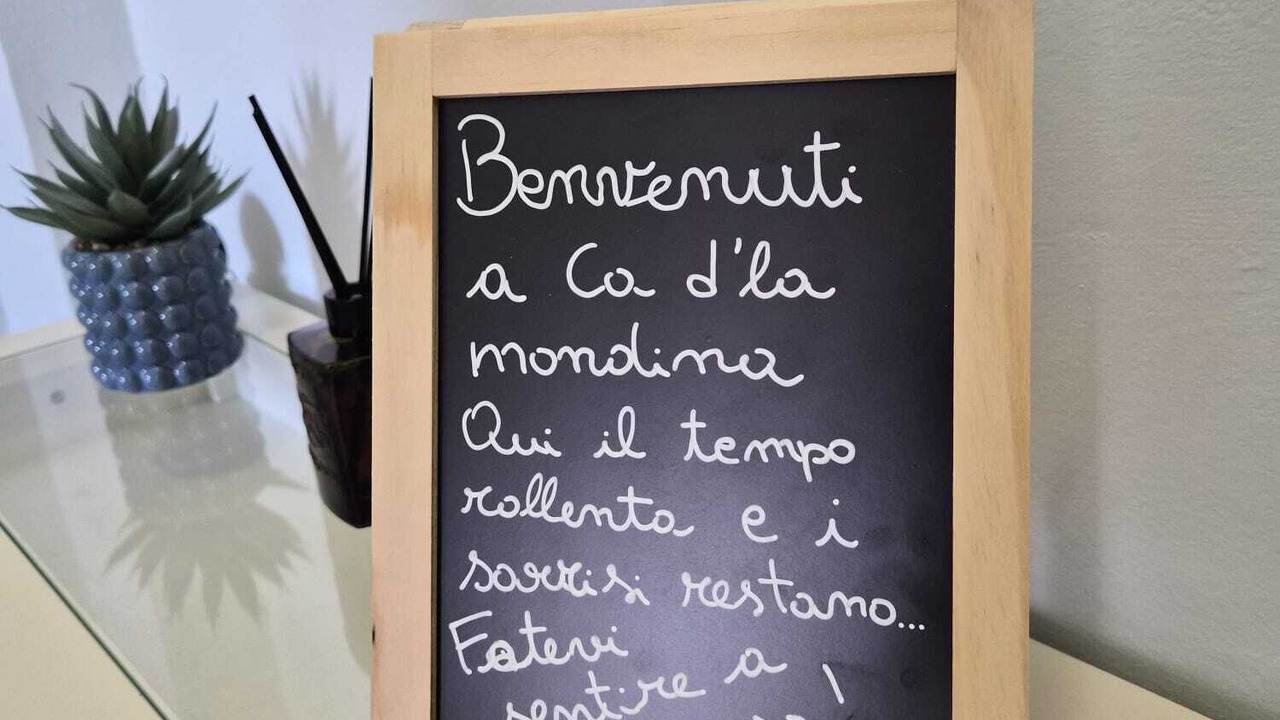 Benvenuti
a Ca d'la
mondina
Qui il tempo
rallenta e i
sorrisi restano...
Fatevi
sentire a